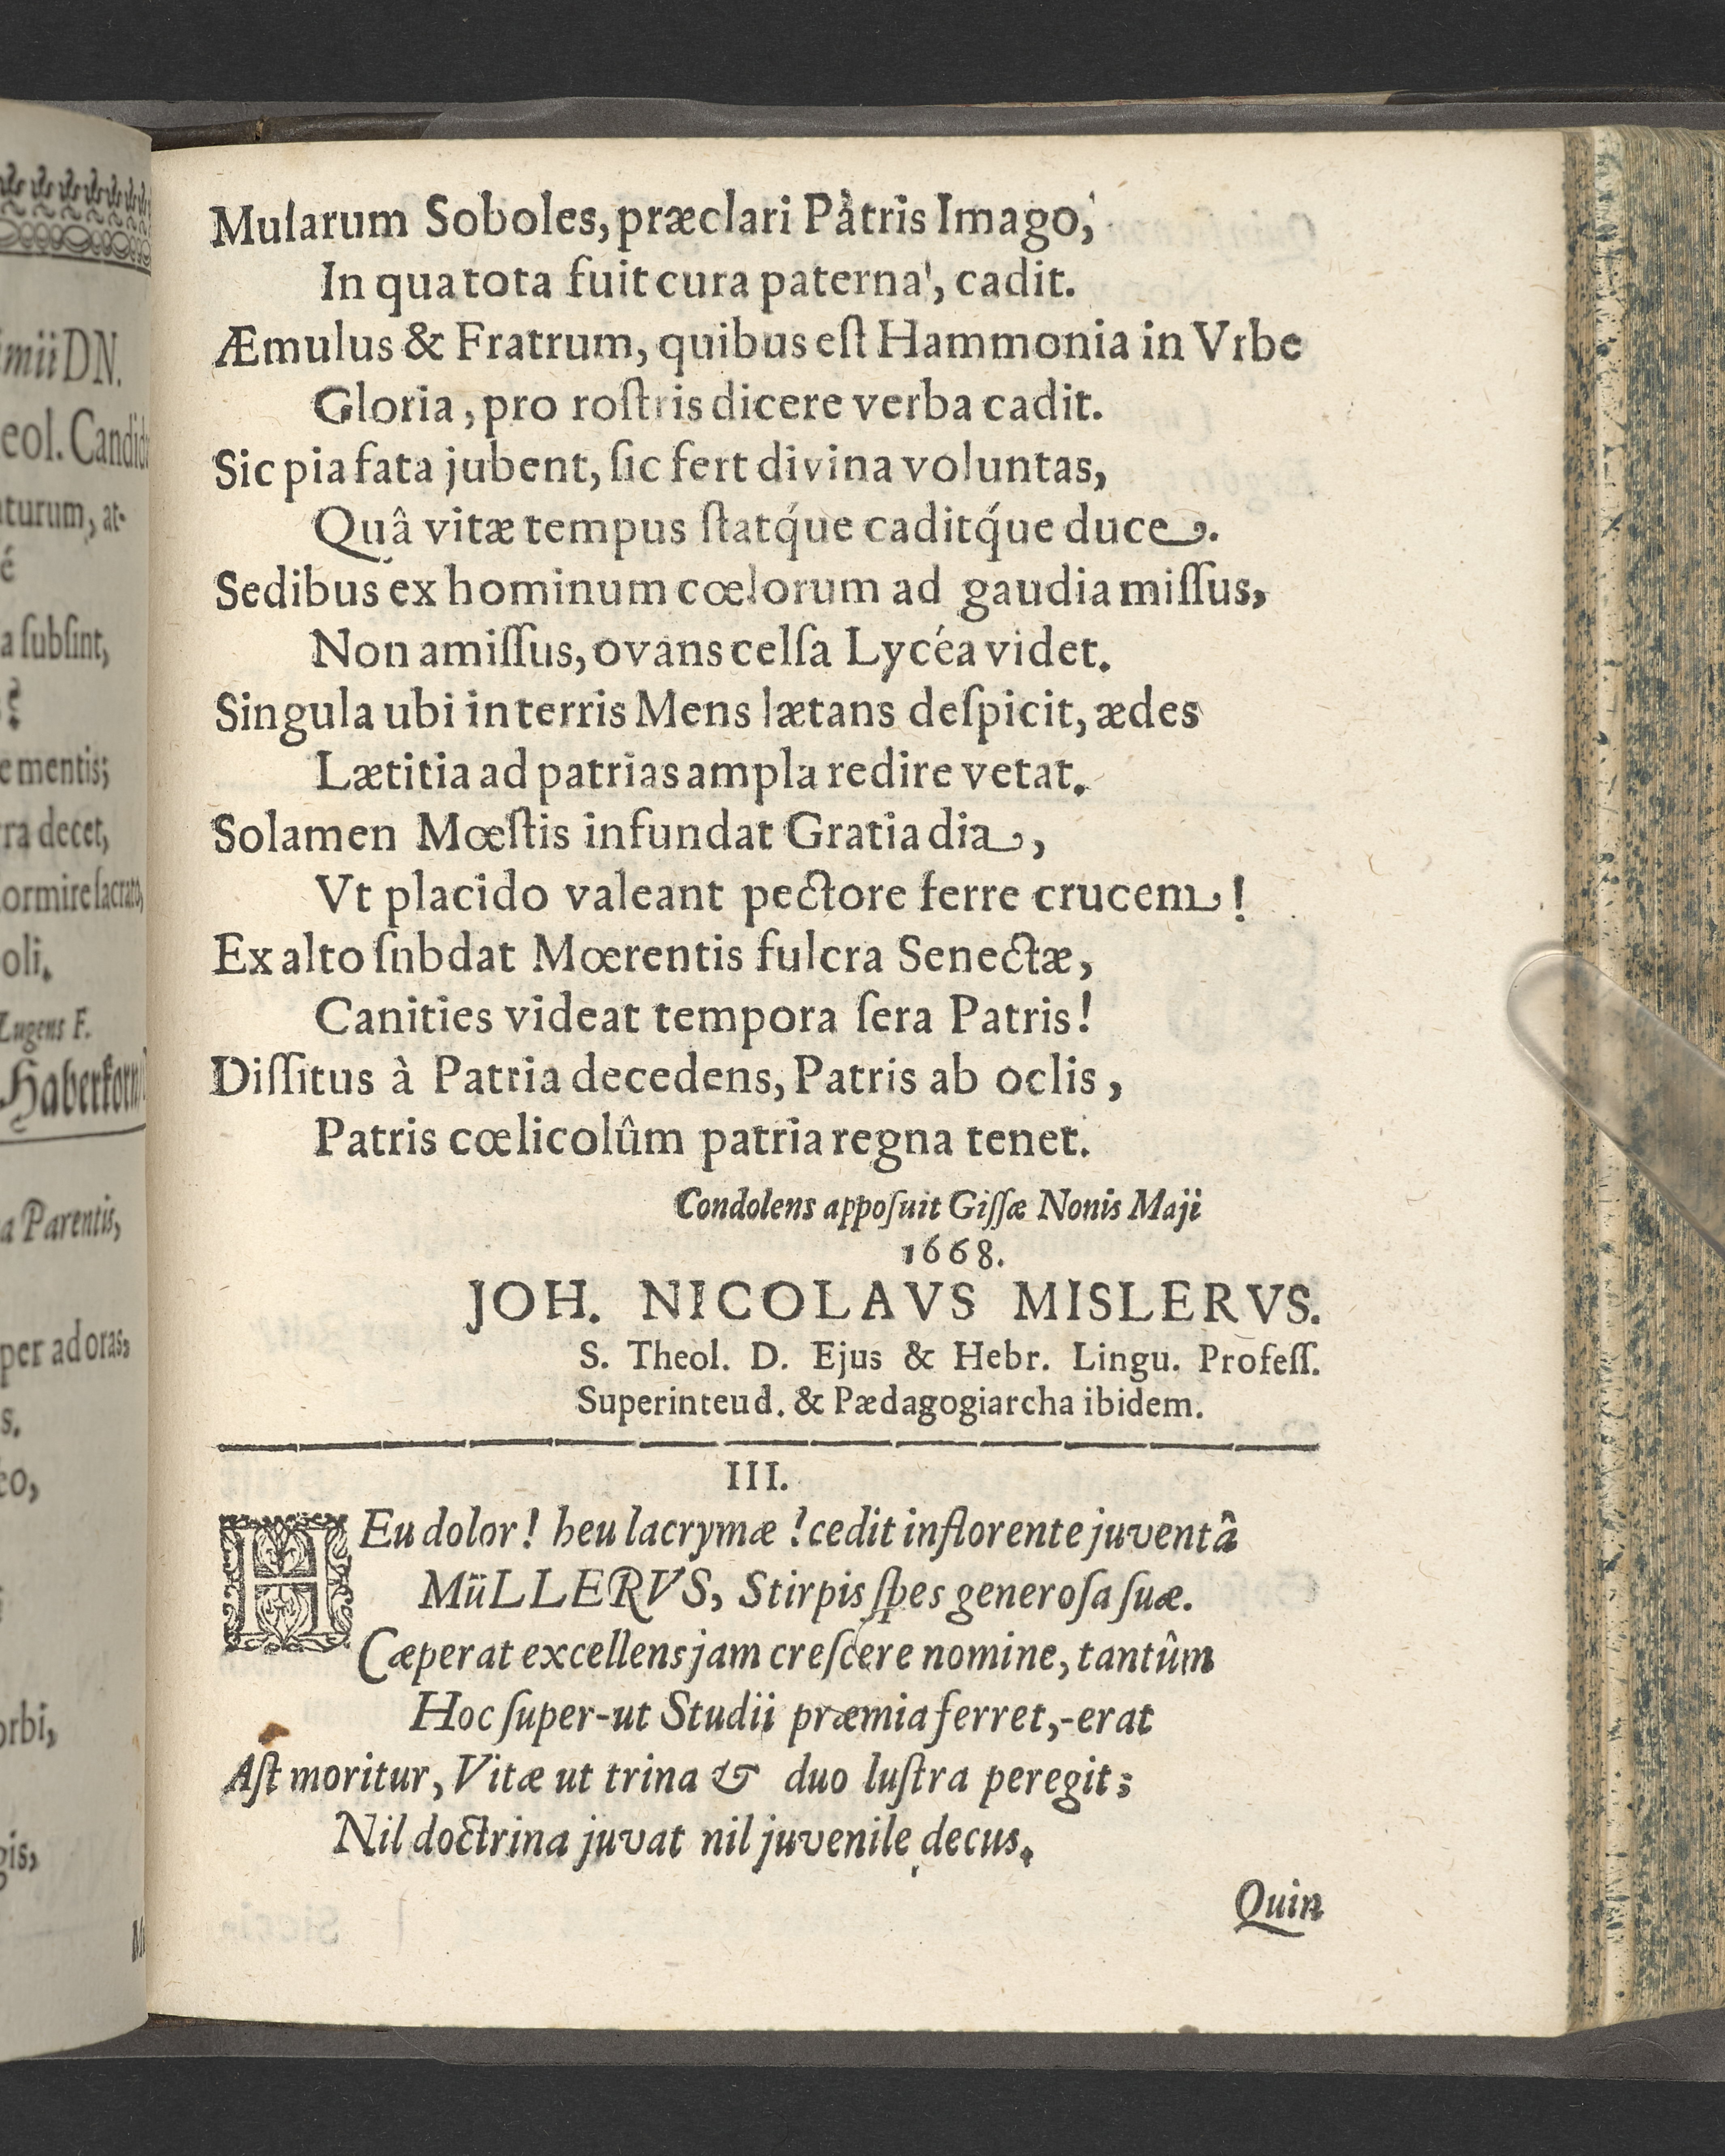 imii DN.
eol. Candid
aturum, at-
é
a ſubſint,
?
e mentis;
rra decet,
ormire ſacrato,
oli.
Lugens F.
Haberkorn
a Parentis,
per ad oras,
s.
eo,
orbi,
gis,
Muſarum Soboles, præclari Patris Imago,
In qua tota fuit cura paterna, cadit.
Æmulus & Fratrum, quibus eſt Hammonia in Vrbe
Gloria, pro roſtris dicere verba cadit.
Sic pia fata jubent, ſic fert divina voluntas,
Quâ vitæ tempus ſtatq́ue caditq́ue duce.
Sedibus ex hominum cœlorum ad gaudia miſſus,
Non amiſſus, ovans celſa Lycéa videt.
Singula ubi in terris Mens lætans deſpicit, ædes
Lætitia ad patrias ampla redire vetat.
Solamen Mœſtis infundat Gratia dia,
Vt placido valeant pectore ferre crucem!
Ex alto ſnbdat Mœrentis fulcra Senectæ,
Canities videat tempora ſera Patris!
Diſſitus à Patria decedens, Patris ab oclis,
Patris cœlicolûm patria regna tenet.
Condolens appoſuit Giſſæ Nonis Maji
1668.
JOH. NICOLAVS MISLERVS.
S. Theol. D. Ejus & Hebr. Lingu. Profeſſ.
Superinteud. & Pædagogiarcha ibidem.
III.
HEu dolor! heu lacrymæ! cedit in florente juventâ
MüLLERVS, Stirpis ſpes generoſa ſuæ.
Cæperat excellens jam creſcere nomine, tantûm
Hoc ſuper-ut Studii præmia ferret,-erat
Aſt moritur, Vitæ ut trina & duo luſtra peregit;
Nil doctrina juvat nil juvenile decus.
Quin